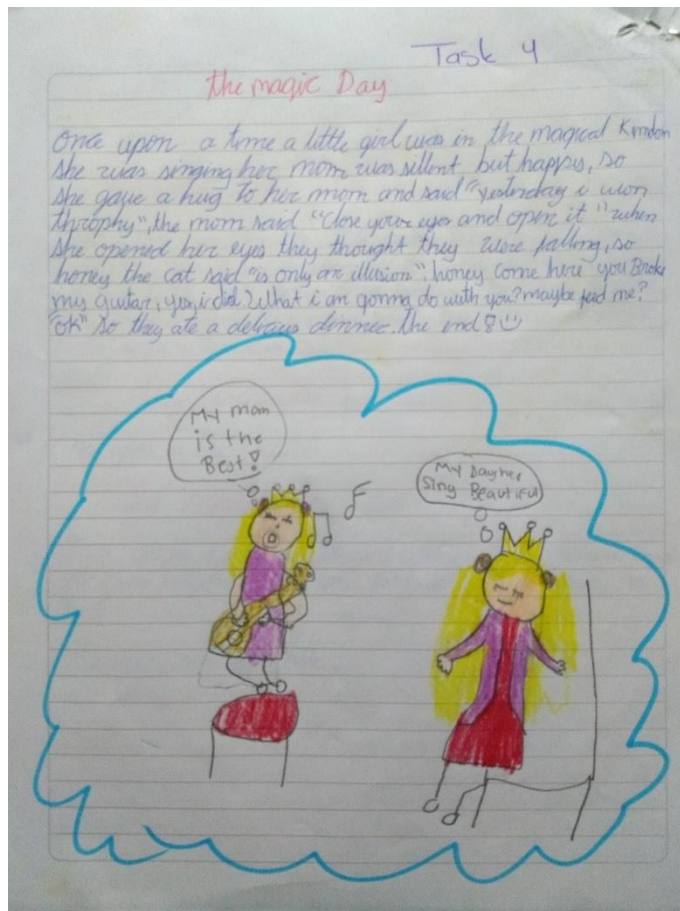 Task 4
the magic Day
Once upon a time a little girl was in the magical Kindon
she was singing her mom was sillent but happy, so
she gave a hug to her mom and said "yesterday i won
throphy", the mom said "Close your eyes and open it" when
she opened her eyes they thought they were falling, so
honey the cat said "is only an illusion" honey come here you Broke
my guitar, yes i did What i am gonna do with you? maybe feed me?
"ok" so they ate a dinner. the end
My mom
is the
Best!
My
Sing Beautiful